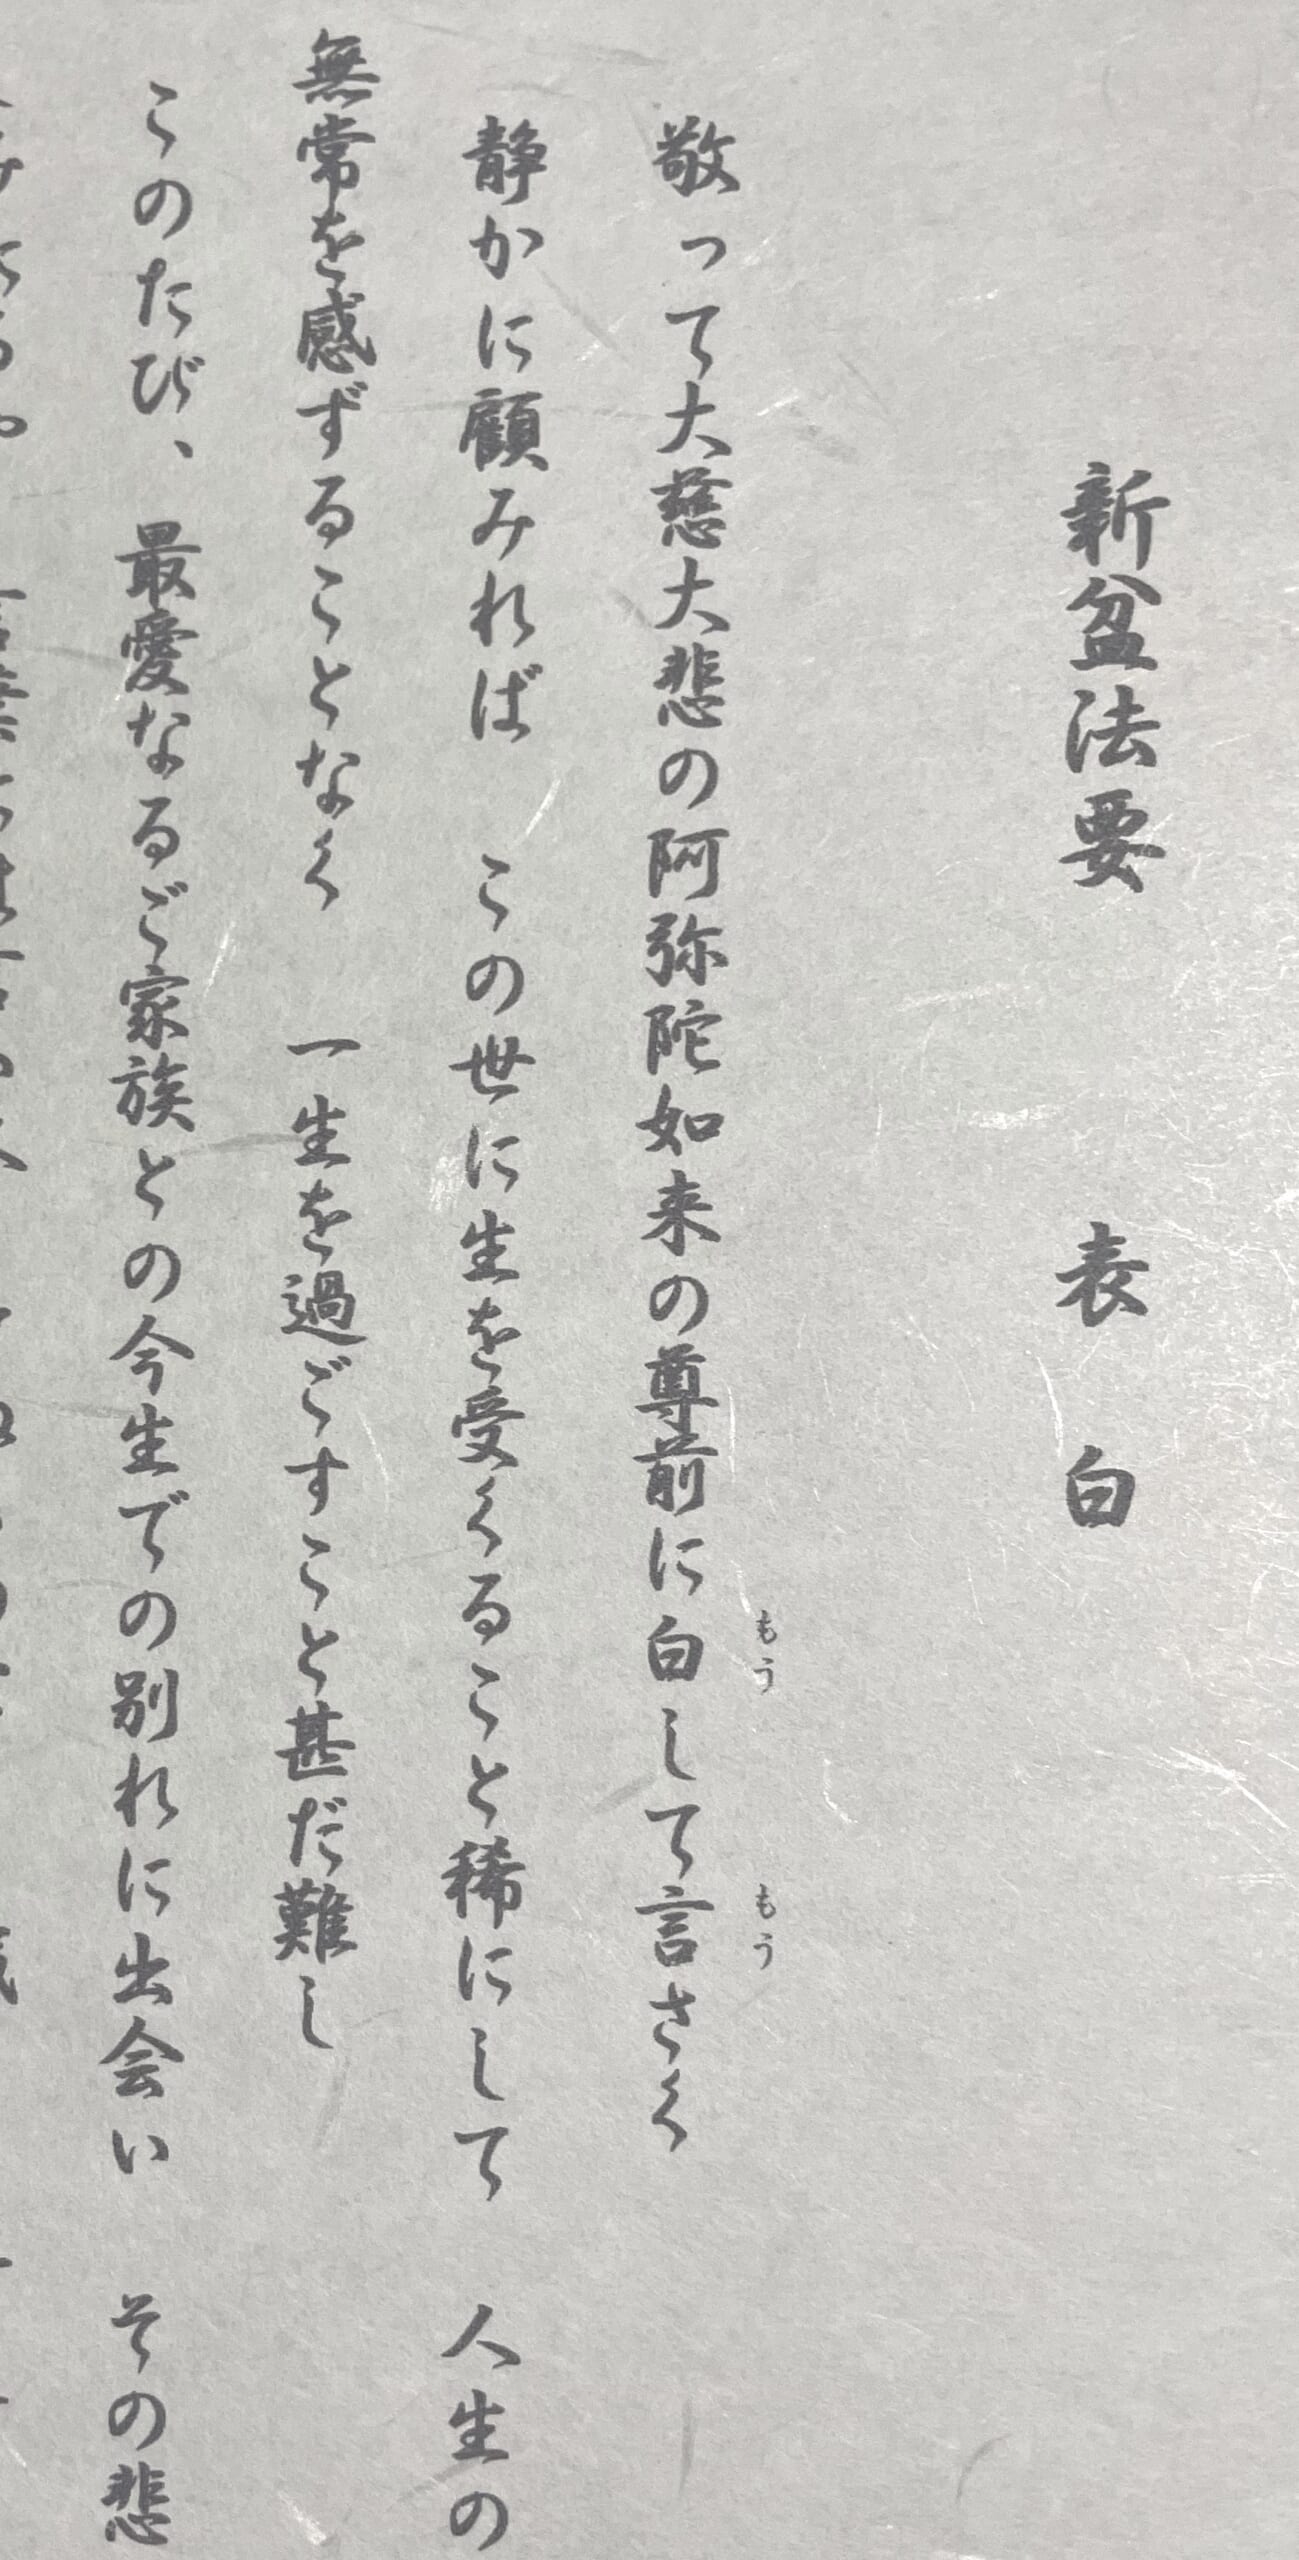 新盆法要　表白
敬って大慈大悲の阿弥陀如来の尊前に白して言さく
もう　もう
静かに顧みれば　この世に生を受くること稀にして　人生の
無常を感ずることなく　一生を過ごすこと甚だ難し
このたび、最愛なるご家族との今生での別れに出会い　その悲